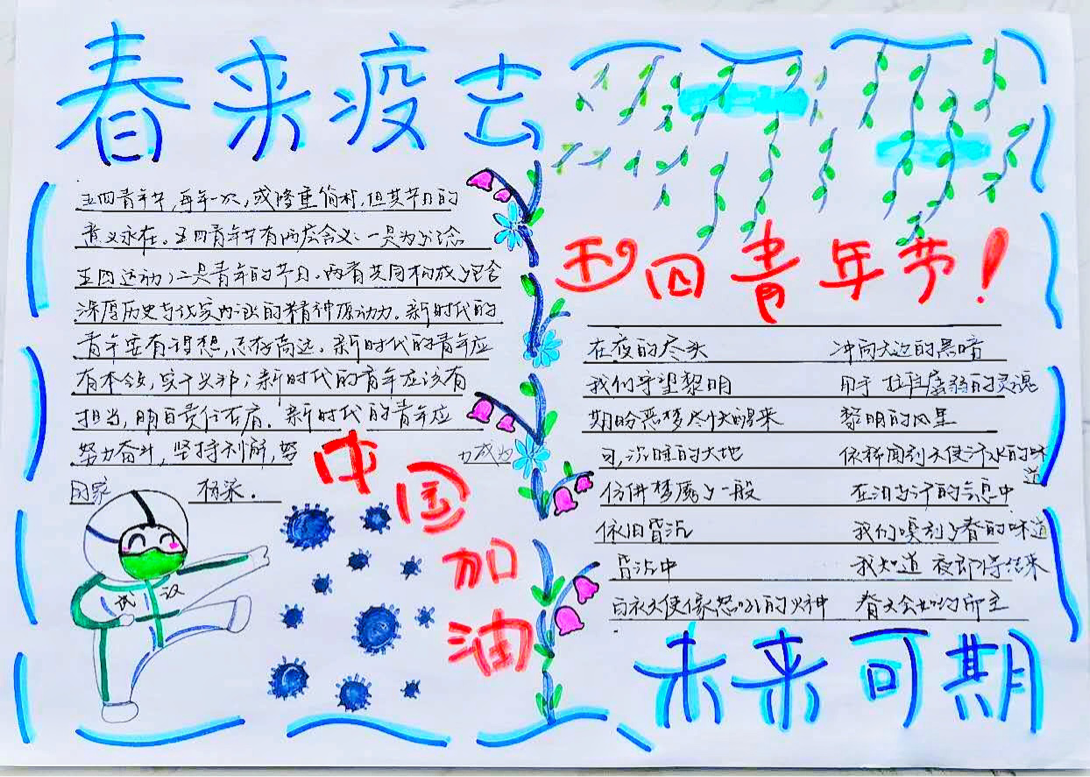 春来疫去
五四青年节,每年一次,或隆重简朴,但其节日的
意义永在。五四青年节有两层含义:一是为纪念
五四运动;二是青年的节日。两者共同构成了饱含
深厚历史与代实内涵的精神原动力。新时代的
青年要有理想,志存高远。新时代的青年应
有本领,实干兴邦;新时代的青年应该有
担当,明白责任在肩。新时代的青年应
努力奋斗,坚持利解,努
力成为
国家 栋梁。
中国加油
武汉
五四青年节!
在夜的尽头
我们守望黎明
期盼恶梦尽快醒来
沉睡的大地
仿佛梦魇了一般
依旧昏沉
昏沉中
白衣天使像怒吼的火神
冲向无边的黑暗
用于 孱弱的灵魂
黎明的风里
依稀闻到天使汗水的味道
在泪与汗的气息中
我们嗅到了春的味道
我知道 夜即将结束
春天会如约而至
未来可期